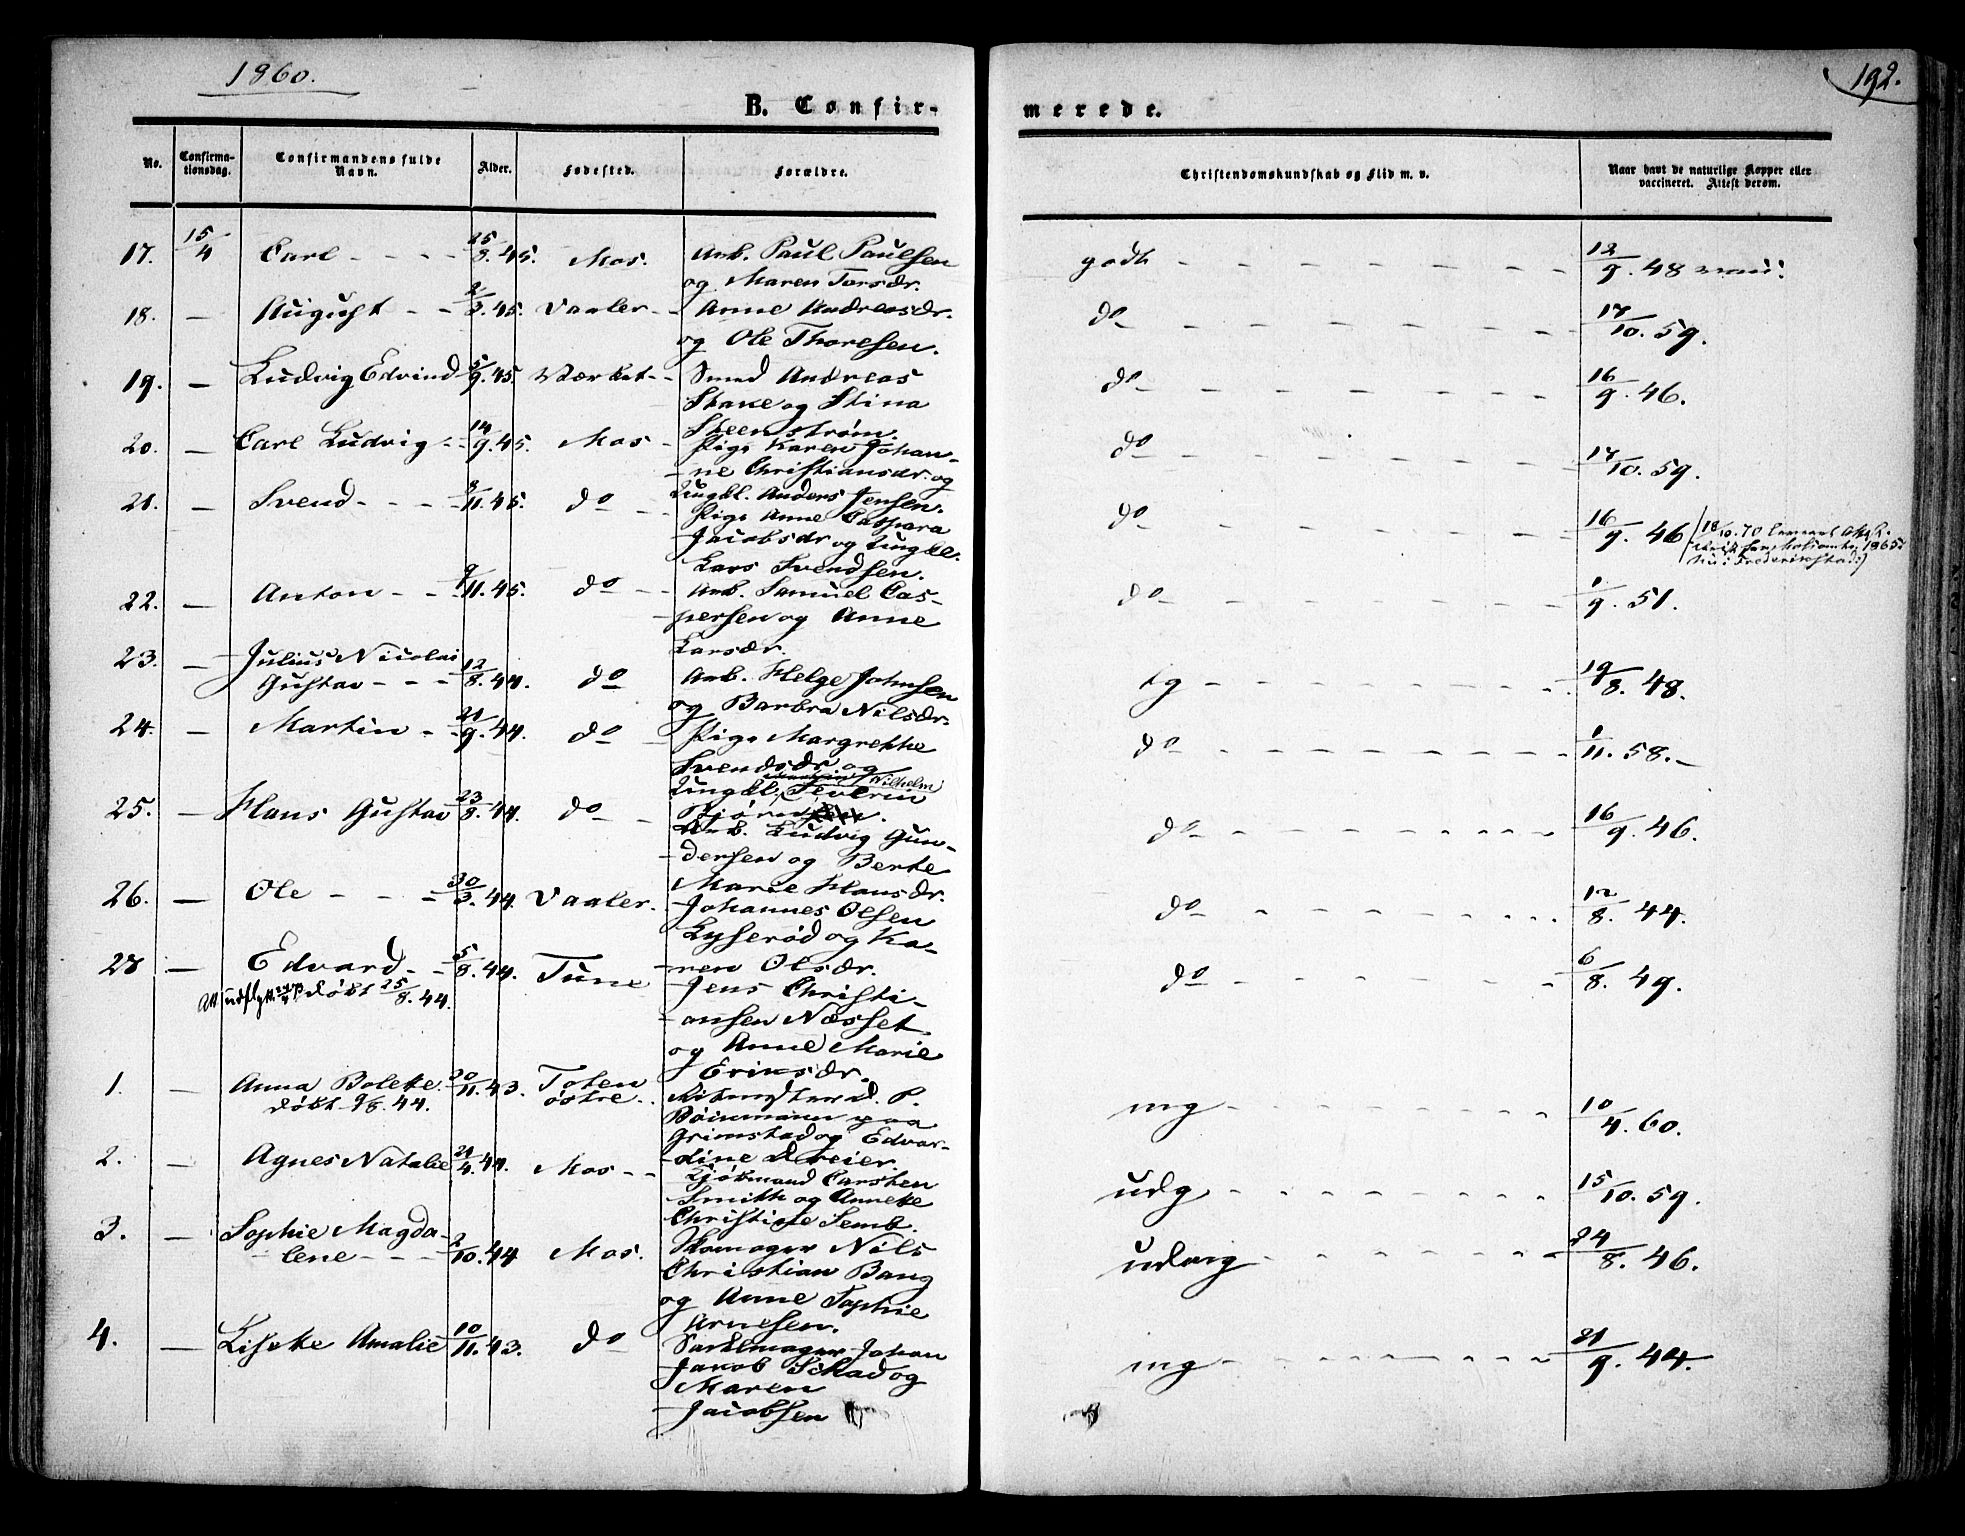 1860.
192.
B. Confir-
merede.
No.
Confirma-
tionsdag.
Confirmandens fulde
Navn.
Alder.
Fødested.
Forældre.
Christendomskundskab og Flid m. v.
Naar havt de naturlige Kopper eller
vaccineret. Attest derom.
17. 15/4 Carl - - - - 25/3.45. Mos. Arb. Paul Paulsen
og Maren Torsdr.
godt 12/9. 48
18. — August - - 2/3.45. Vaaler - - Anne Andreasdr.
og Ole Thoresen.
do 17/10. 59.
19. — Ludvig Edvind 5/9.45. Værket - - Smed Andreas
Stake og Stina
Steenstrøm.
do 16/9. 46.
20. — Carl Ludvig - - 14/9.45. Mos - Pige Karen Johan-
-ne Christiansdr. og
Ungkl. Anders Jensen.
do 17/10. 59.
21. — Svend - - - - 3/11.45. do - - Pige Anne Caspara
Jacobsdr og Ungkl.
Lars Svendsen.
do 16/9. 46
22. — Anton - - 9/11.45. do - - Arb. Samuel Cas-
persen og Anne
Larsdr.
do 1/9. 51.
23. — Julius Nicolai
Gustav - - - 12/8.44. do Arb. Helge Johnsen
og Barbra Nilsdr.
tg 19/8. 48.
24. — Martin - - 21/9.44. do - Pige Margrethe
Svendsdr og
Wilhelm
Ungkl. Severin
do 1/11. 58. —
25. — Hans Gustav 23/8.44. do - Arb. Ludvig Gun-
-dersen og Berte
Marie Hansdr.
do 16/9. 46.
26. — Ole - - - 30/3.44. Vaaler. Johannes Olsen
Lyserød og Ka-
-ren Olsdr.
do 12/8. 44.
27 — Edvard - - 5/8.44. Tune Jens Christi-
-ansen Næsset
og Anne Marie
Eriksdr.
døbt 25/8. 44.
do 6/8. 49.
1. — Anna Bolette 20/11.43. Toten
østre.
døbt 9/8. 44.
Grimstad og Edvar-
-dine Dreier.
mg 10/4. 60.
2. — Agnes Natalie 21/4.44. Mos - - Kjøbmand Carsten
Smith og Annette
Christine Semb.
udg 15/10. 59.
3. — Sophie Magda-
-lene - - - 2/10.44 Mos. Skomager Nils
Christian Bang
og Anne Sophie
Arnesen.
udvig 24/8. 46.
4. — Lisette Amalie 10/11.43. do Sadelmager Johan
Jakob Schad og
Maren
Jacobsen
mg 21/9. 44.